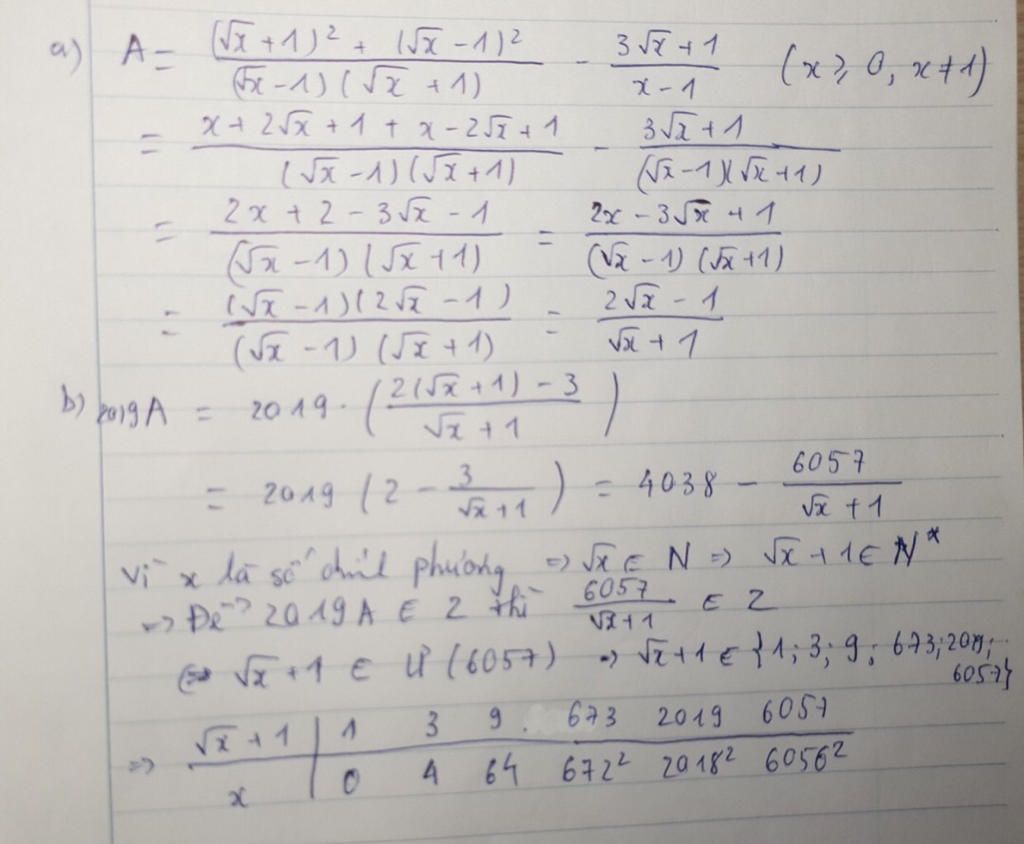 a) A = ((√x + 1)² + (√x - 1)²)/((√x - 1)(√x + 1)) - (3√x + 1)/(x - 1) (x ≥ 0, x ≠ 1)
= (x + 2√x + 1 + x - 2√x + 1)/((√x - 1)(√x + 1)) - (3√x + 1)/((√x - 1)(√x + 1))
= (2x + 2 - 3√x - 1)/((√x - 1)(√x + 1)) = (2x - 3√x + 1)/((√x - 1)(√x + 1))
= ((√x - 1)(2√x - 1))/((√x - 1)(√x + 1)) = (2√x - 1)/(√x + 1)
b) 2019A = 2019 · ((2(√x + 1) - 3)/(√x + 1))
= 2019 (2 - 3/(√x + 1)) = 4038 - 6057/(√x + 1)
Vì x là số chính phương ⇒ √x ∈ N ⇒ √x + 1 ∈ N*
⇒ Để 2019A ∈ Z thì 6057/(√x + 1) ∈ Z
⇔ √x + 1 ∈ Ư(6057) ⇒ √x + 1 ∈ {1; 3; 9; 673; 2019;
6057}
⇒ √x + 1 | 1 3 9 673 2019 6057
x | 0 4 64 672² 2018² 6056²